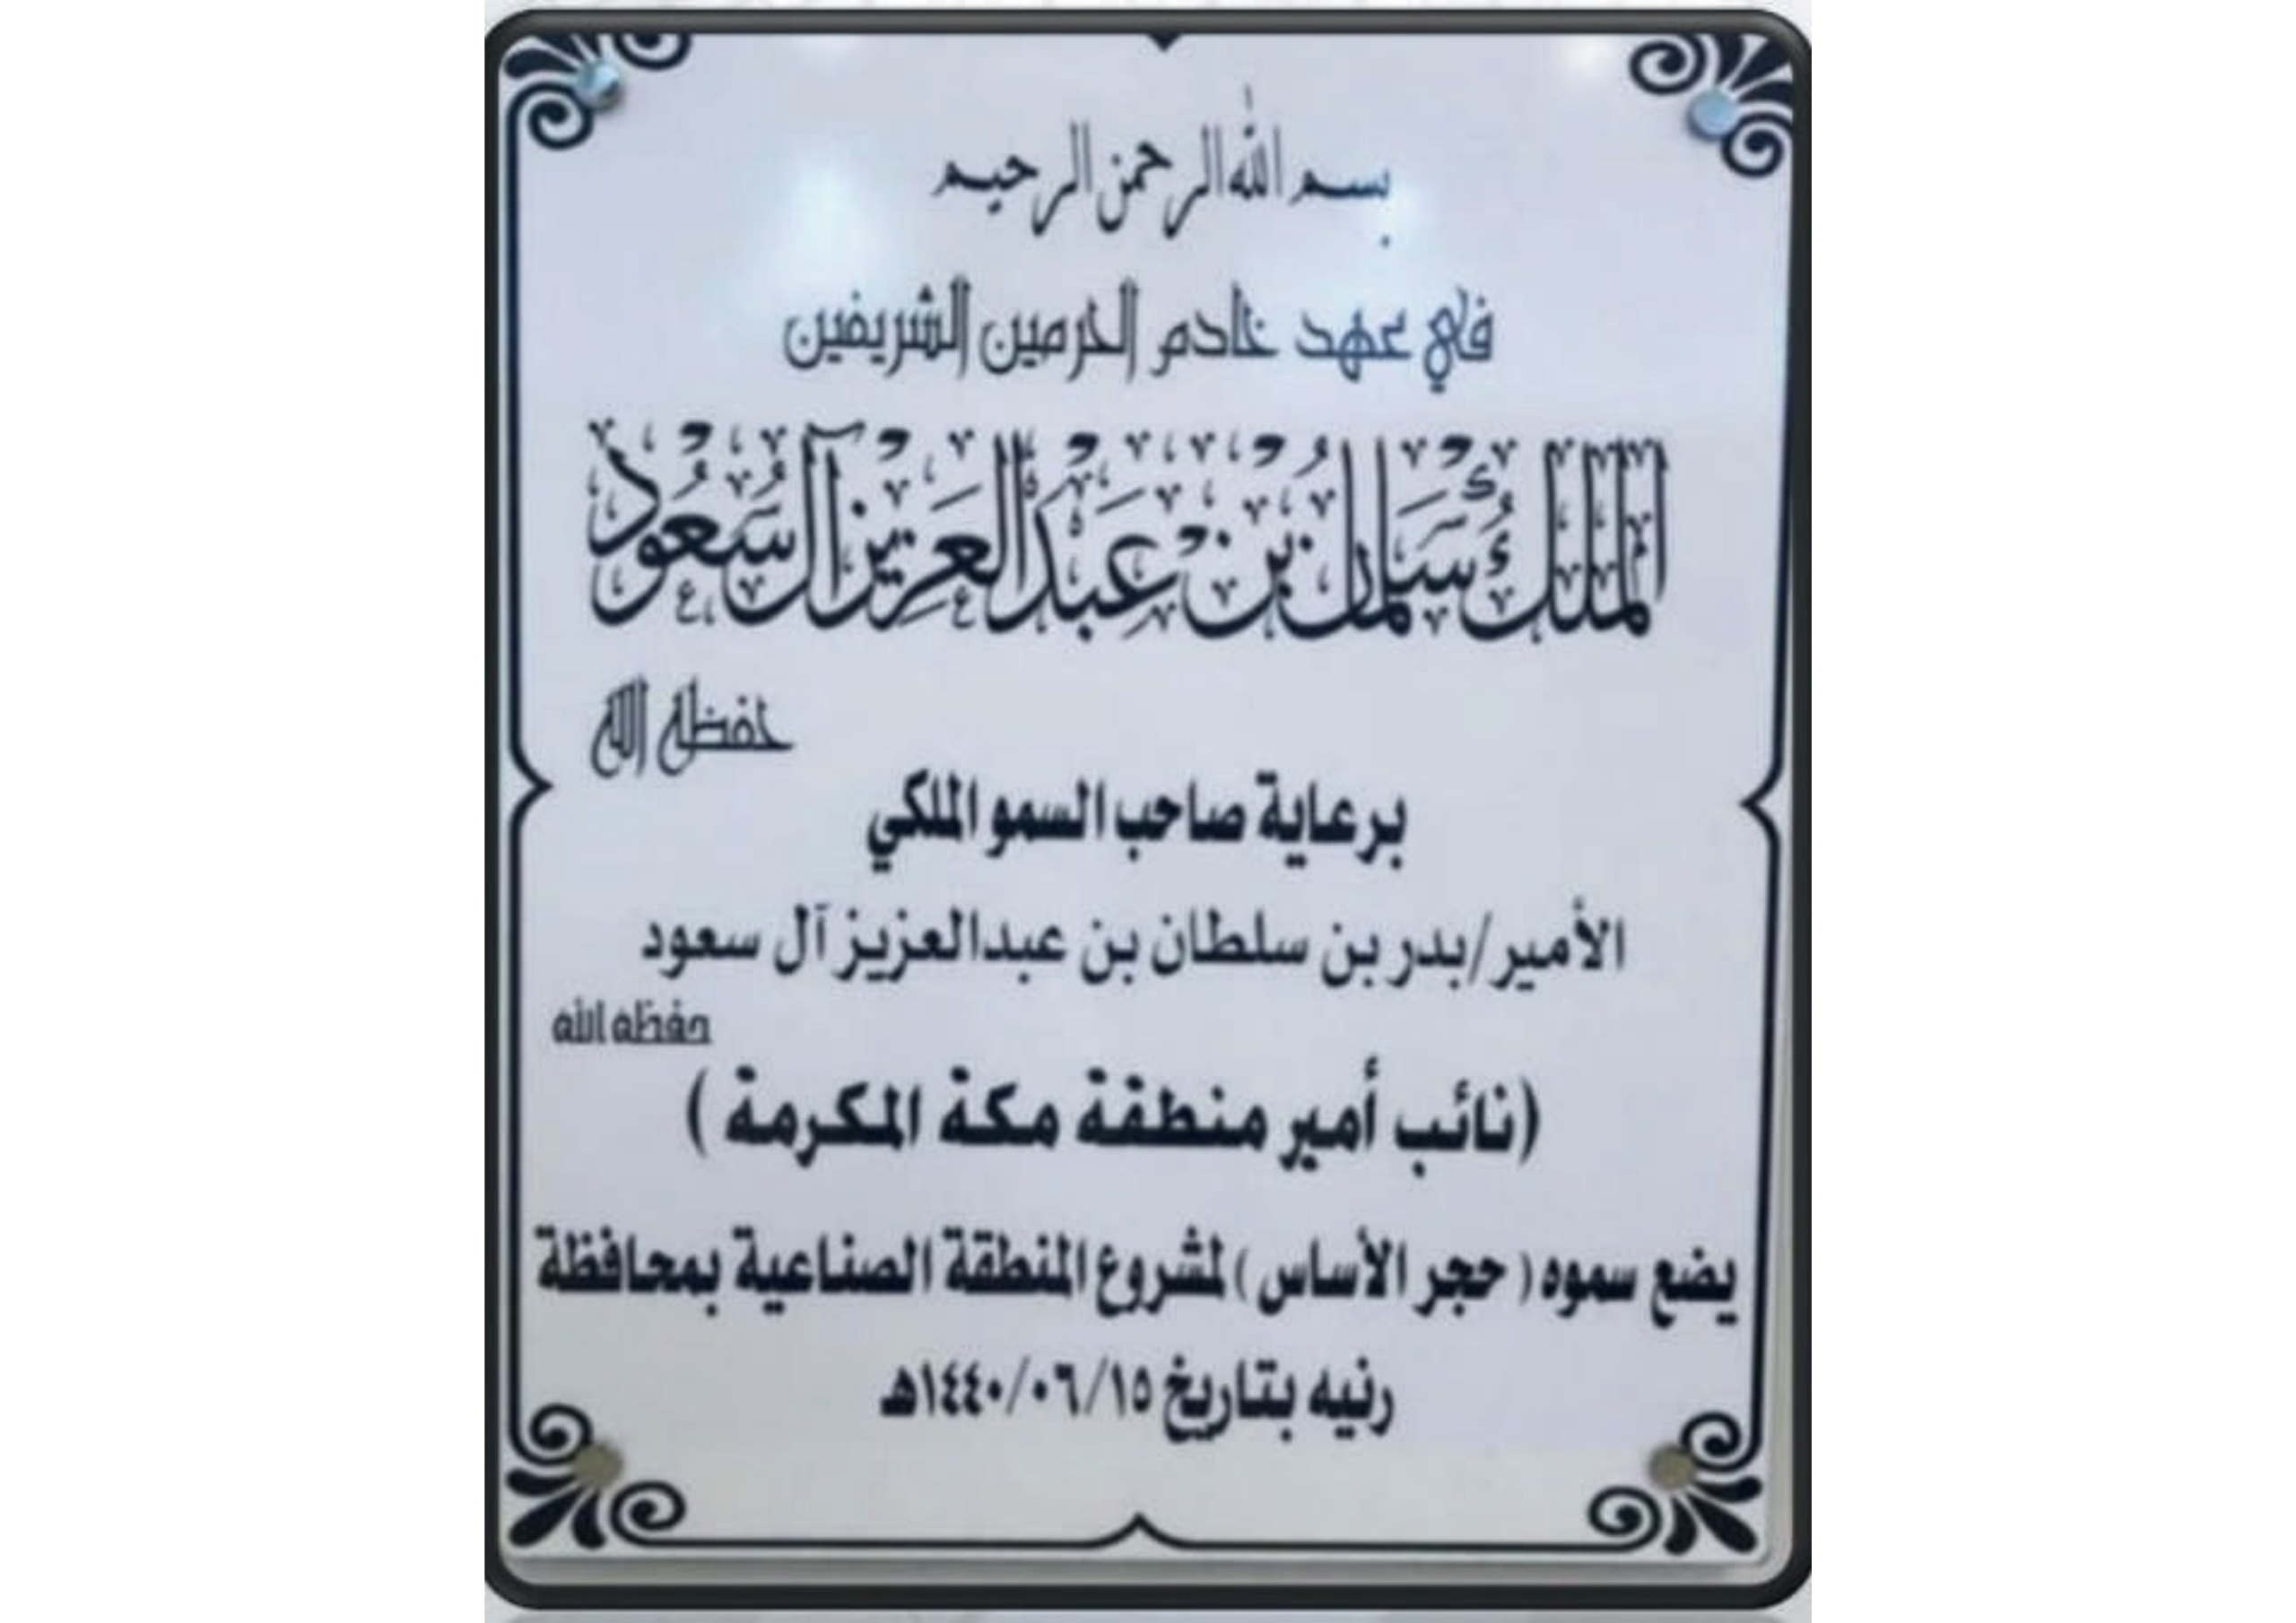 بسم الله الرحمن الرحيم
في عهد خادم الحرمين الشريفين
الملك سلمان بن عبدالعزيز آل سعود
حفظه الله
برعاية صاحب السمو الملكي
الأمير/بدر بن سلطان بن عبدالعزيز آل سعود
حفظه الله
(نائب أمير منطقة مكة المكرمة )
يضع سموه ( حجر الأساس ) لمشروع المنطقة الصناعية بمحافظة
رنيه بتاريخ ١٤٤٠/٠٦/١٥هـ